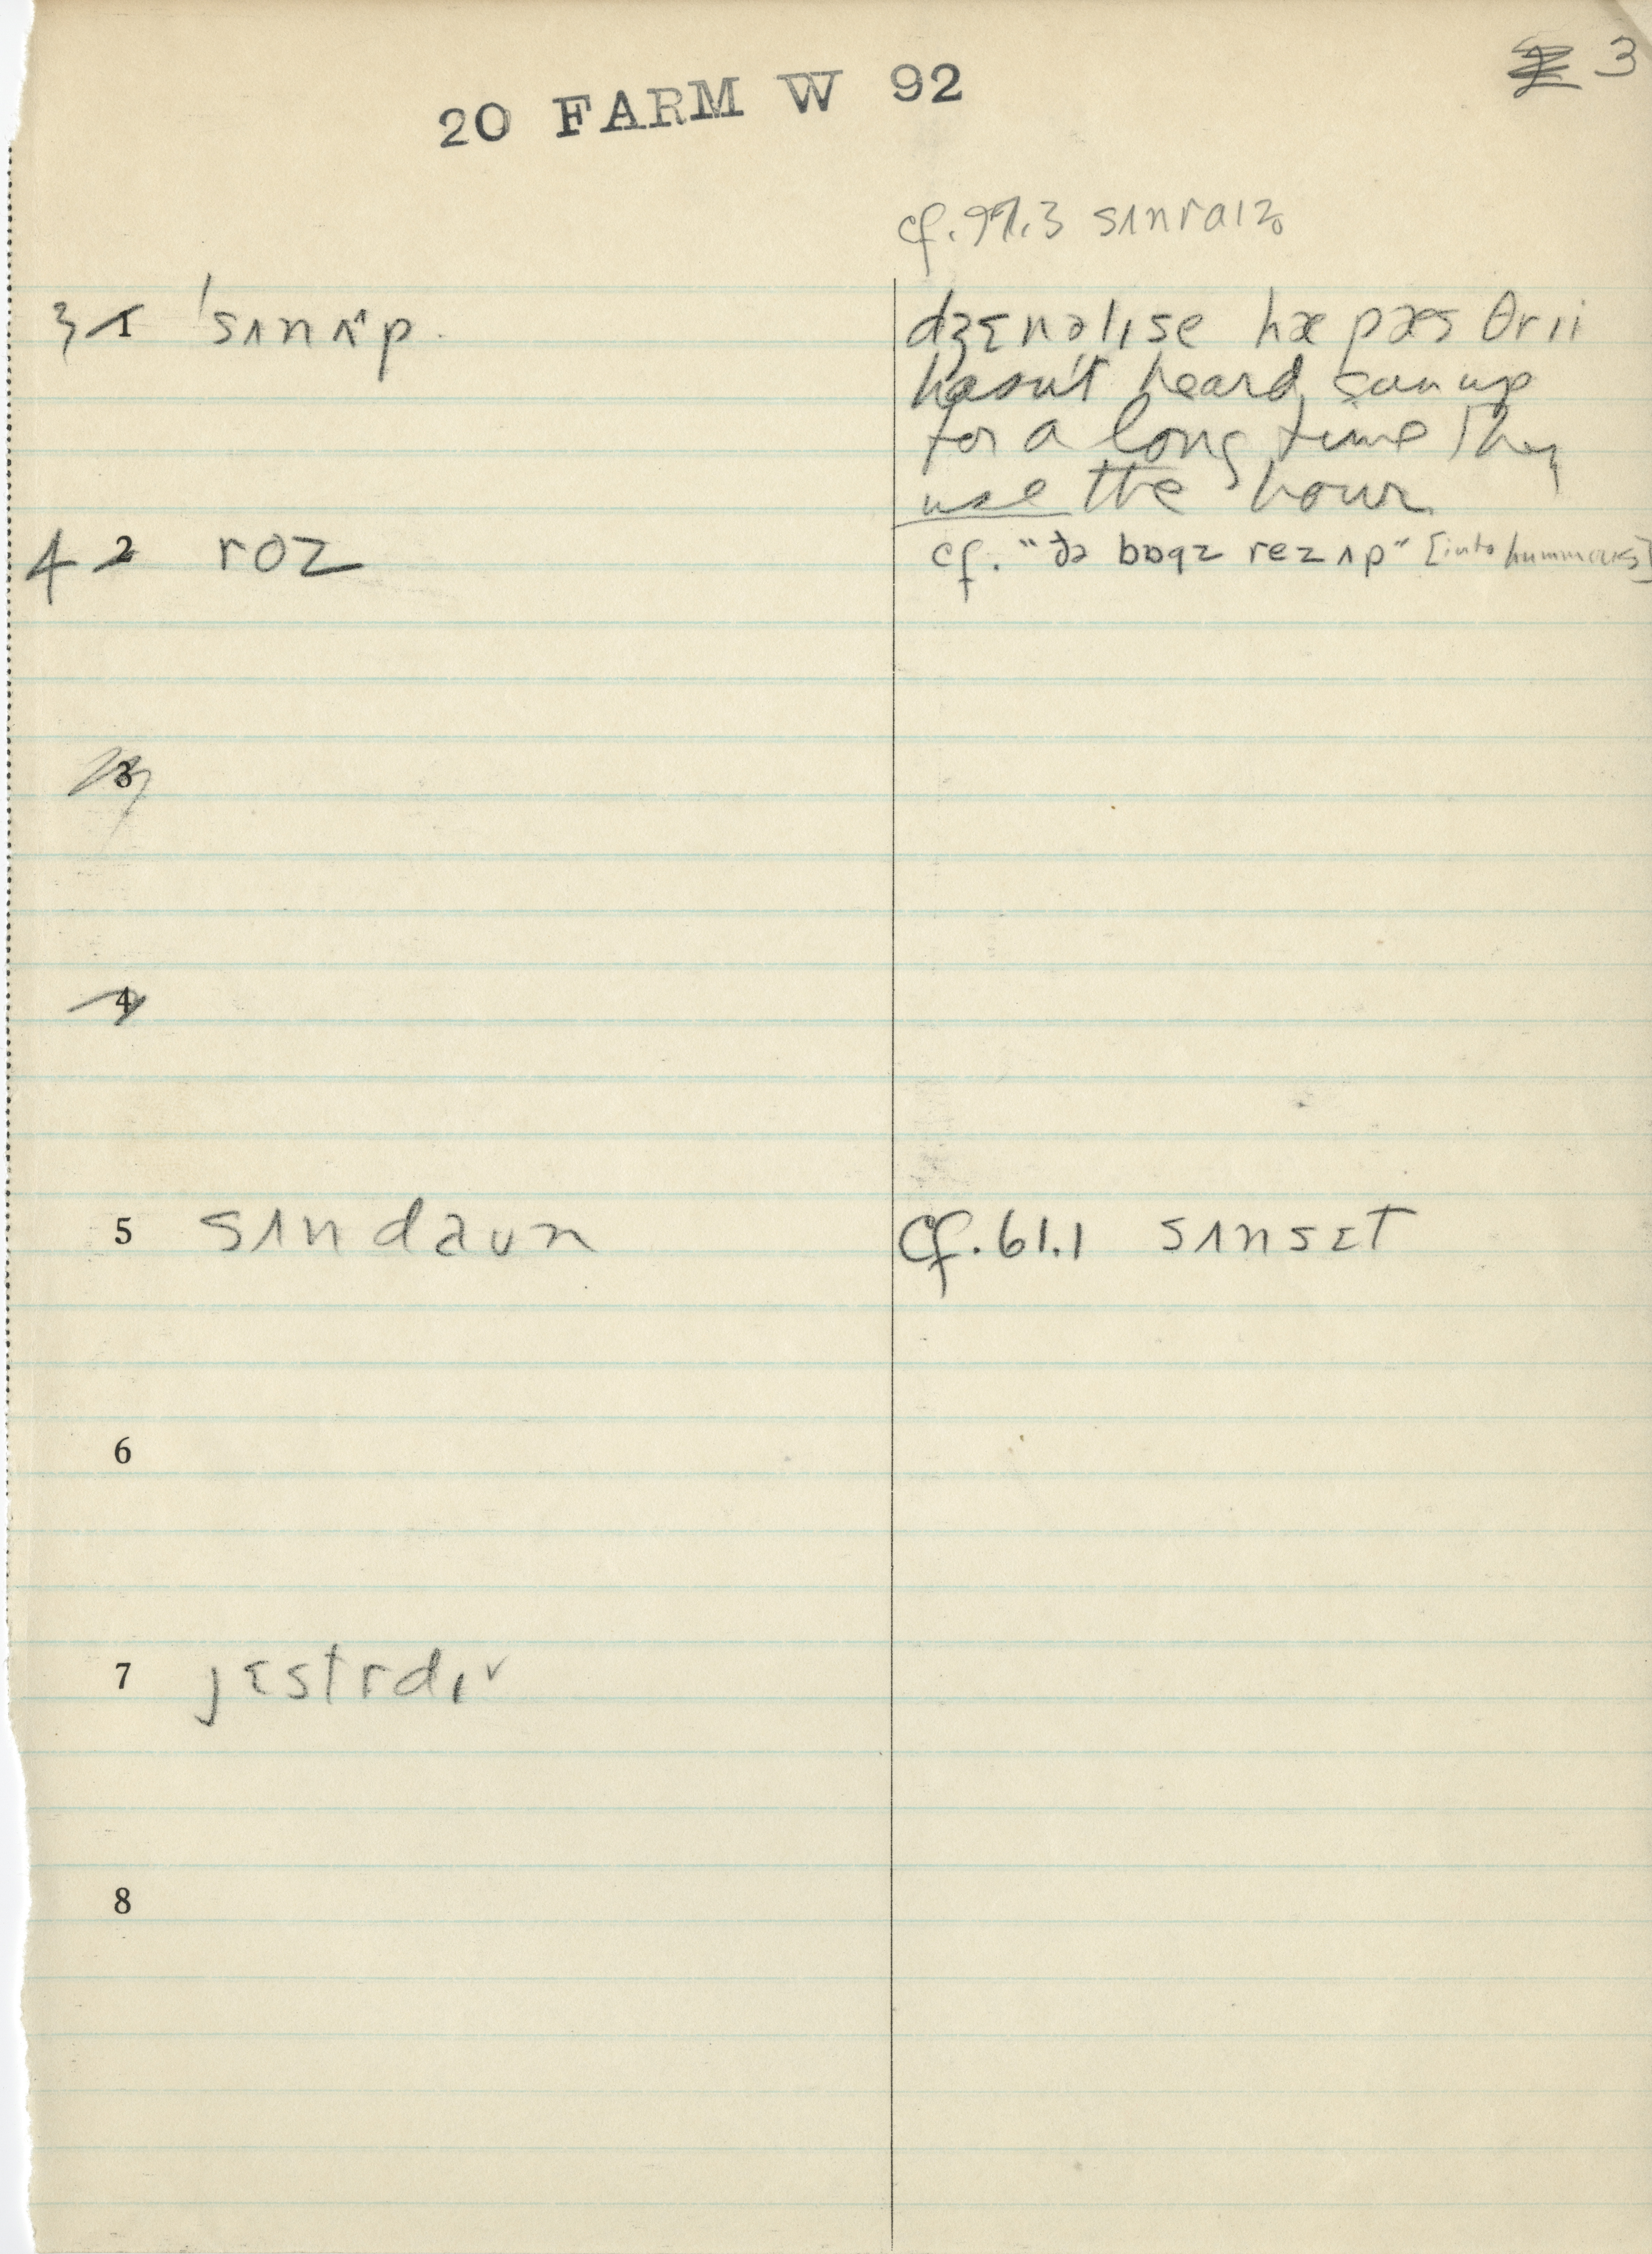 3
20 FARM W 92
cf. 97.3 sʌnraɪz̥
3 1 ˈsʌnʌ^p.
dʒɛnəlɪ se hæ pæs θrii
hasn't heard sun up
for a long time They
use the hour
4 2 roz
cf. "ðə bɒgz rez ʌp" [into hummocks]
3
4
5 sʌndaʊn
cf. 61.1 sʌnsɛt
6
7 jɛstrdɪ˅
8